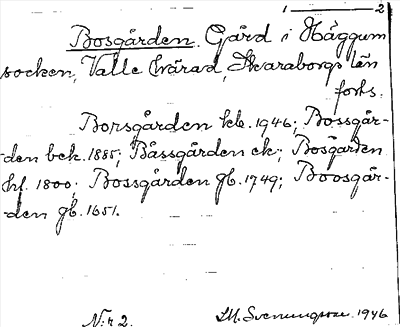 1 — 2
Bosgården. Gård i Häggum
socken, Valle härad, Skaraborgs län
forts.
Borsgården kb. 1946; Bossgår-
den bek. 1885; Bässgården ek; Bosgården
hf. 1800; Bossgården gb. 1749; Boosgår-
den gb. 1651.
N:r 2. M. Svenungsson 1946